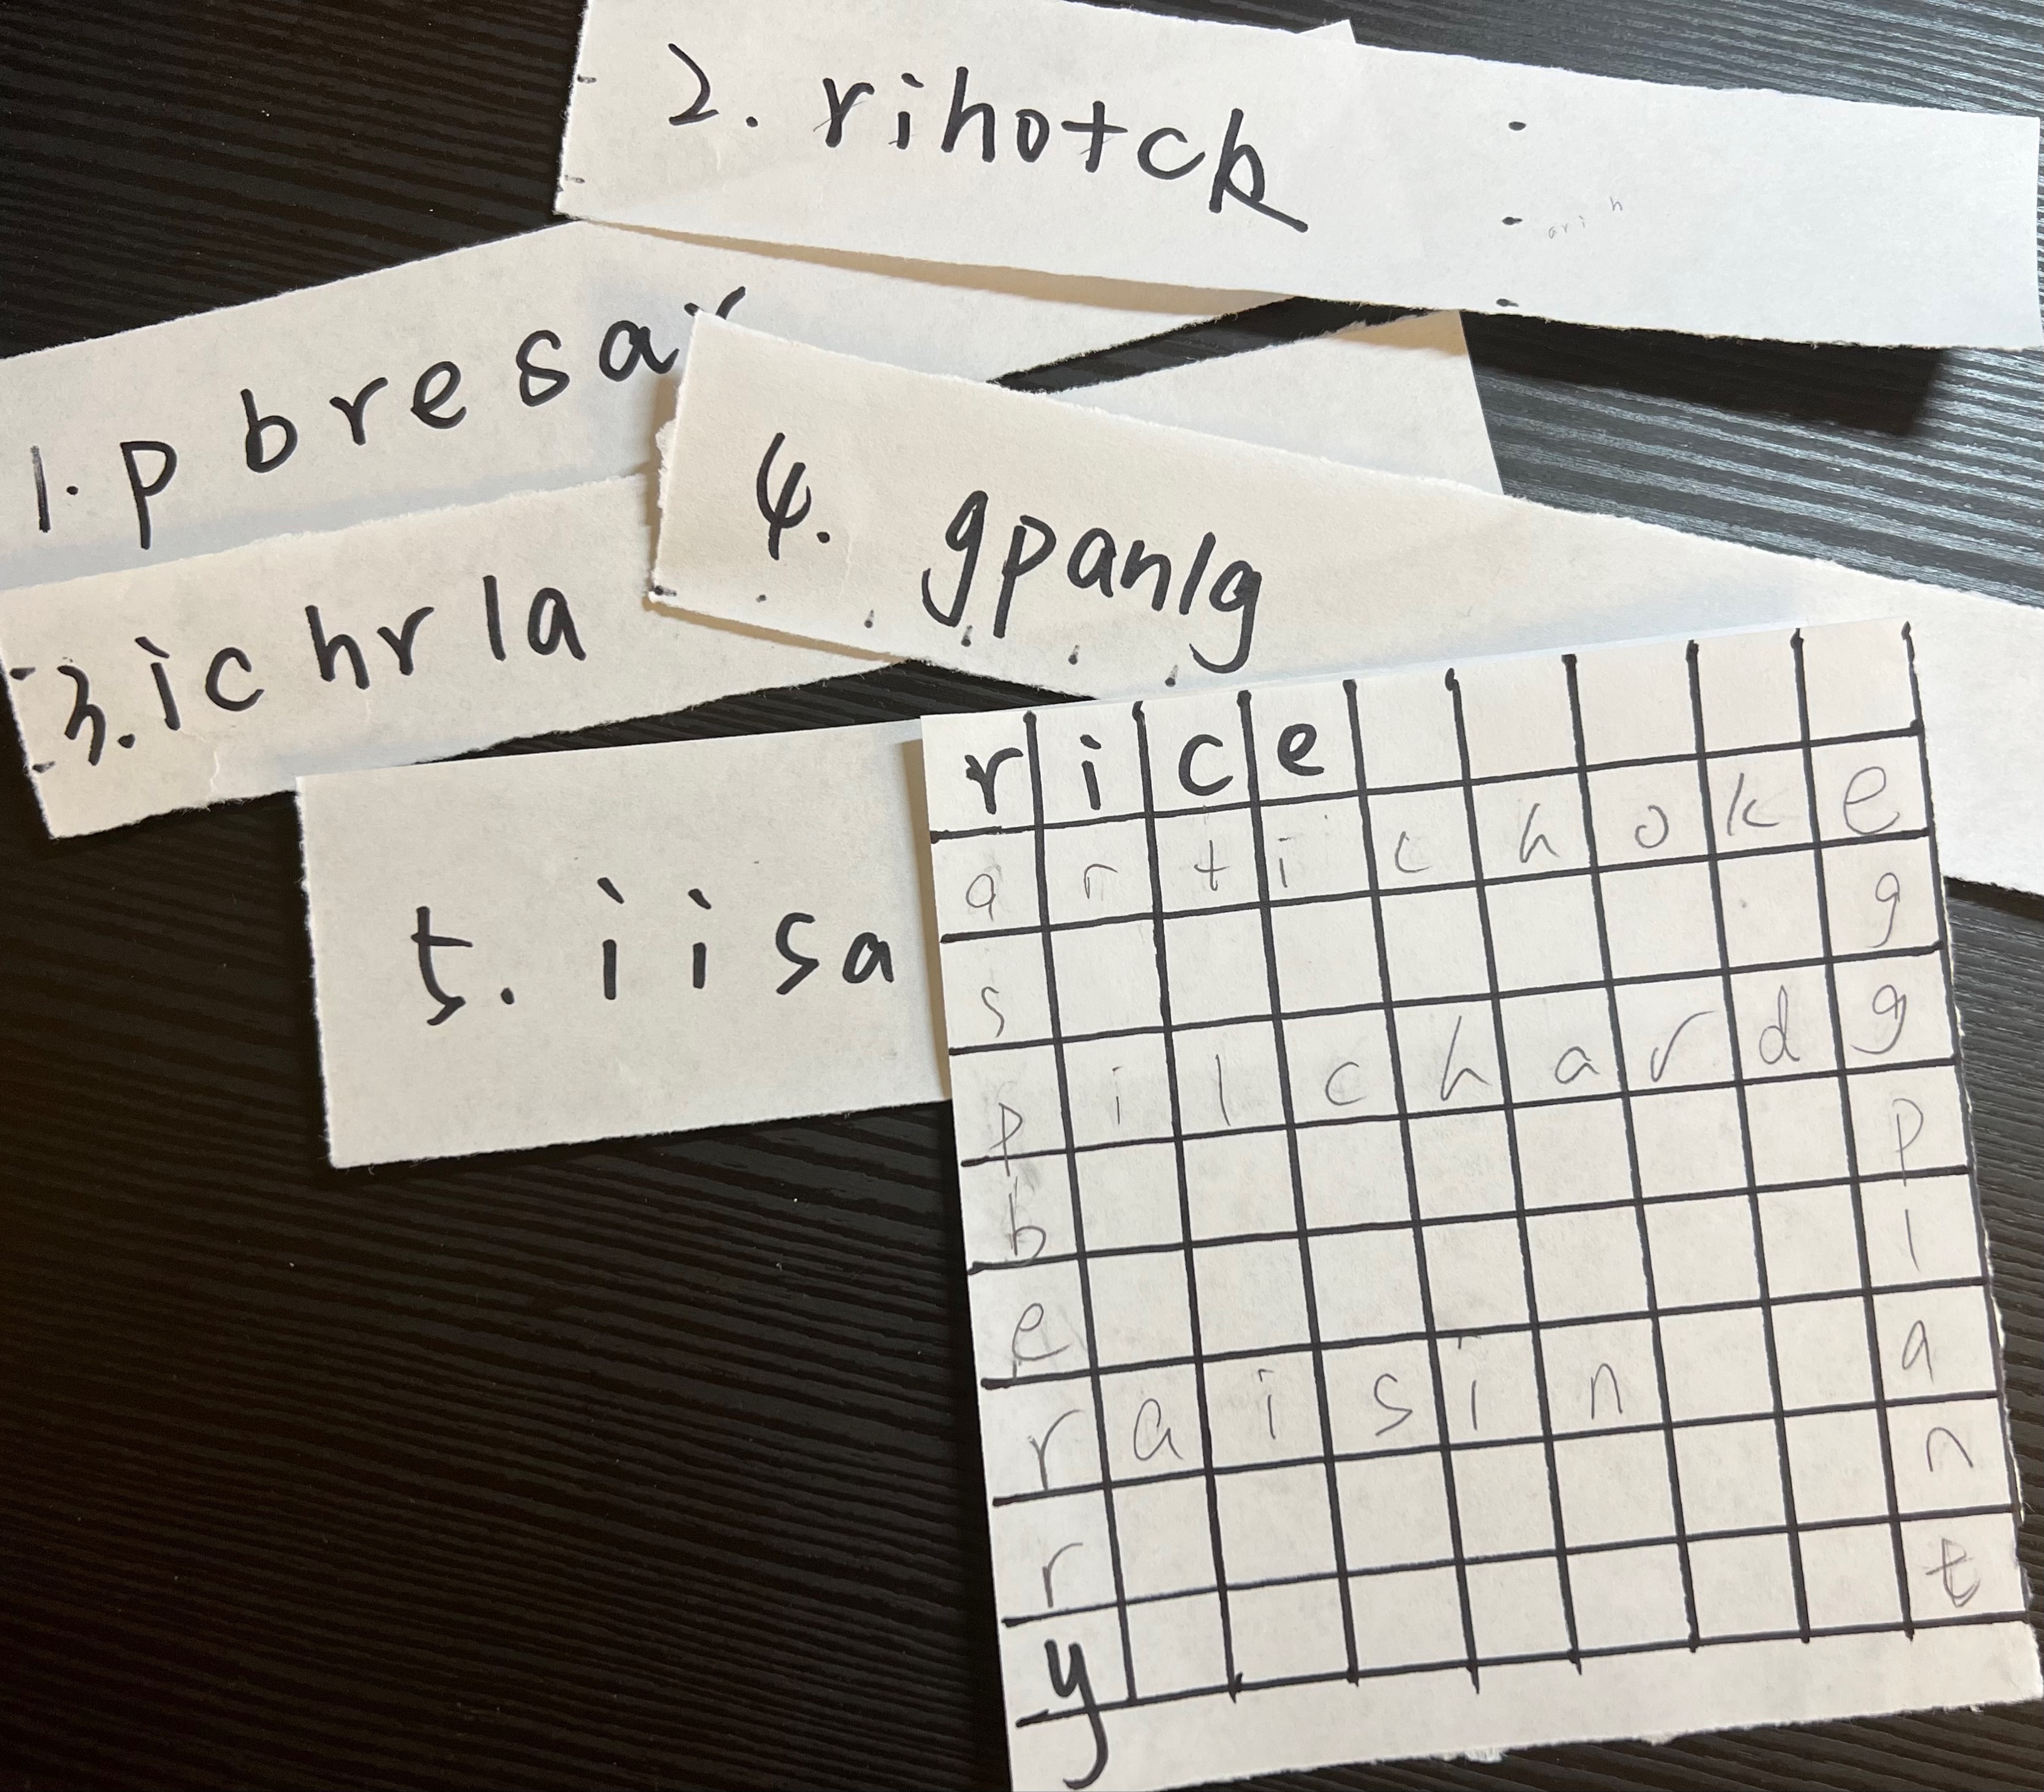 2. rihotck
arih
1. p b r e s a r
4. gpanlg
3. i c h r l a
5. i i s a
r i c e
a r t i c h o k e
s g
p i l c h a r d g
b p
e l
r a i s i n a
r n
y t